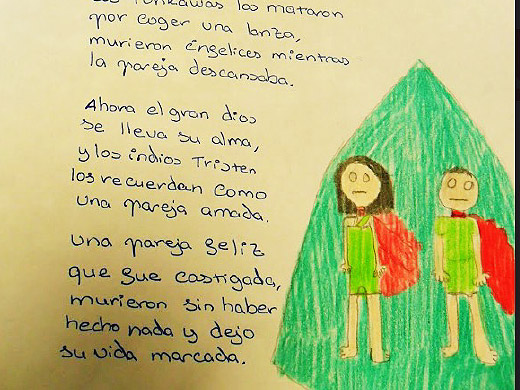 los Tonkawas los mataron
por coger una lanza,
murieron ingelices mientras
la pareja descansaba.
Ahora el gran dios
se lleva su alma,
y los indios Tristen
los recuerdan como
una pareja amada.
una pareja geliz
que gue castigada,
murieron sin haber
hecho nada y dejo
su vida marcada.